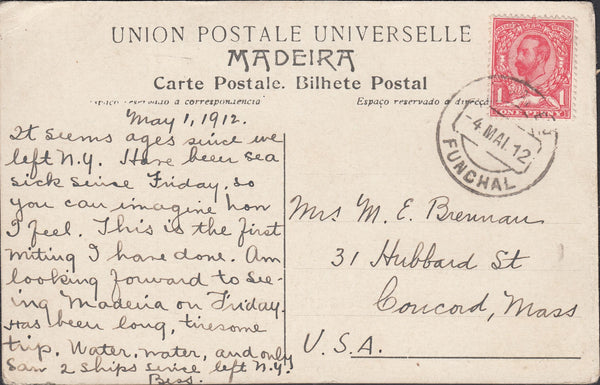 UNION POSTALE UNIVERSELLE
MADEIRA
Carte Postale. Bilhete Postal
Espaço reservado a correspondencia
Espaço reservado a direcçã
May 1, 1912.
It seems ages since we
left N.Y. Have been sea
sick since Friday, so
you can imagine how
I feel. This is the first
writing I have done. Am
looking forward to see-
ing Madeira on Friday.
Has been long, tiresome
trip. Water, water, and only
saw 2 ships since left N.Y.
Bess.
Mrs M. E. Brennan
31 Hubbard St
Concord, Mass
U.S.A.
1 ONE PENNY 1
-4 MAI. 12
FUNCHAL